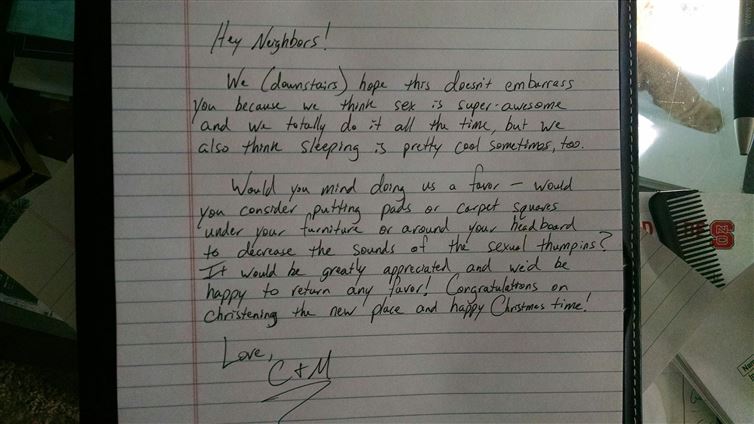 Hey Neighbors!
We (downstairs) hope this doesn't embarrass
you because we think sex is super-awesome
and we totally do it all the time, but we
also think sleeping is pretty cool sometimes, too.
Would you mind doing us a favor — would
you consider putting pads or carpet squares
under your furniture or around your headboard
to decrease the sounds of the sexual thumpins?
It would be greatly appreciated and we'd be
happy to return any favor! Congratulations on
christening the new place and happy Christmas time!
Love,
C + M